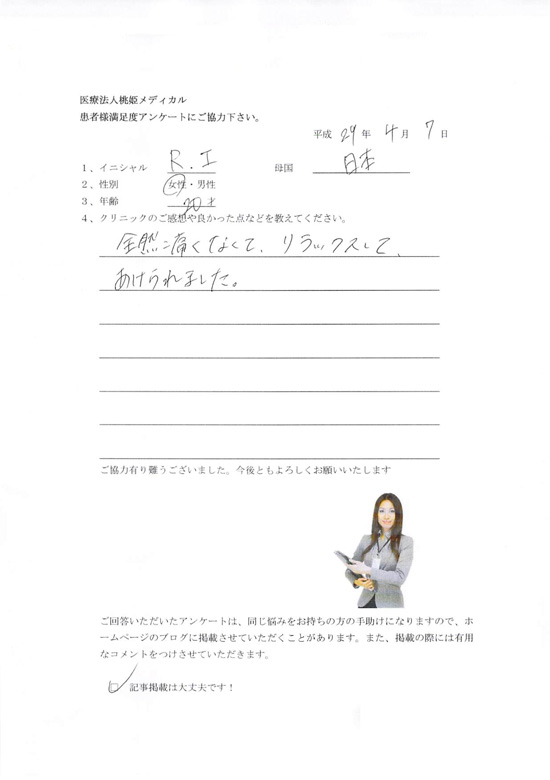 医療法人桃姫メディカル
患者様満足度アンケートにご協力下さい。
平成 29 年 4 月 7 日
1、イニシャル R.I 母国 日本
2、性別 女性・男性
3、年齢 20才
4、クリニックのご感想や良かった点などを教えてください。
全然痛くなくて、リラックスして、
あけられました。
ご協力有り難うございました。今後ともよろしくお願いいたします
ご回答いただいたアンケートは、同じ悩みをお持ちの方の手助けになりますので、ホ
ームページのブログに掲載させていただくことがあります。また、掲載の際には有用
なコメントをつけさせていただきます。
□ 記事掲載は大丈夫です！